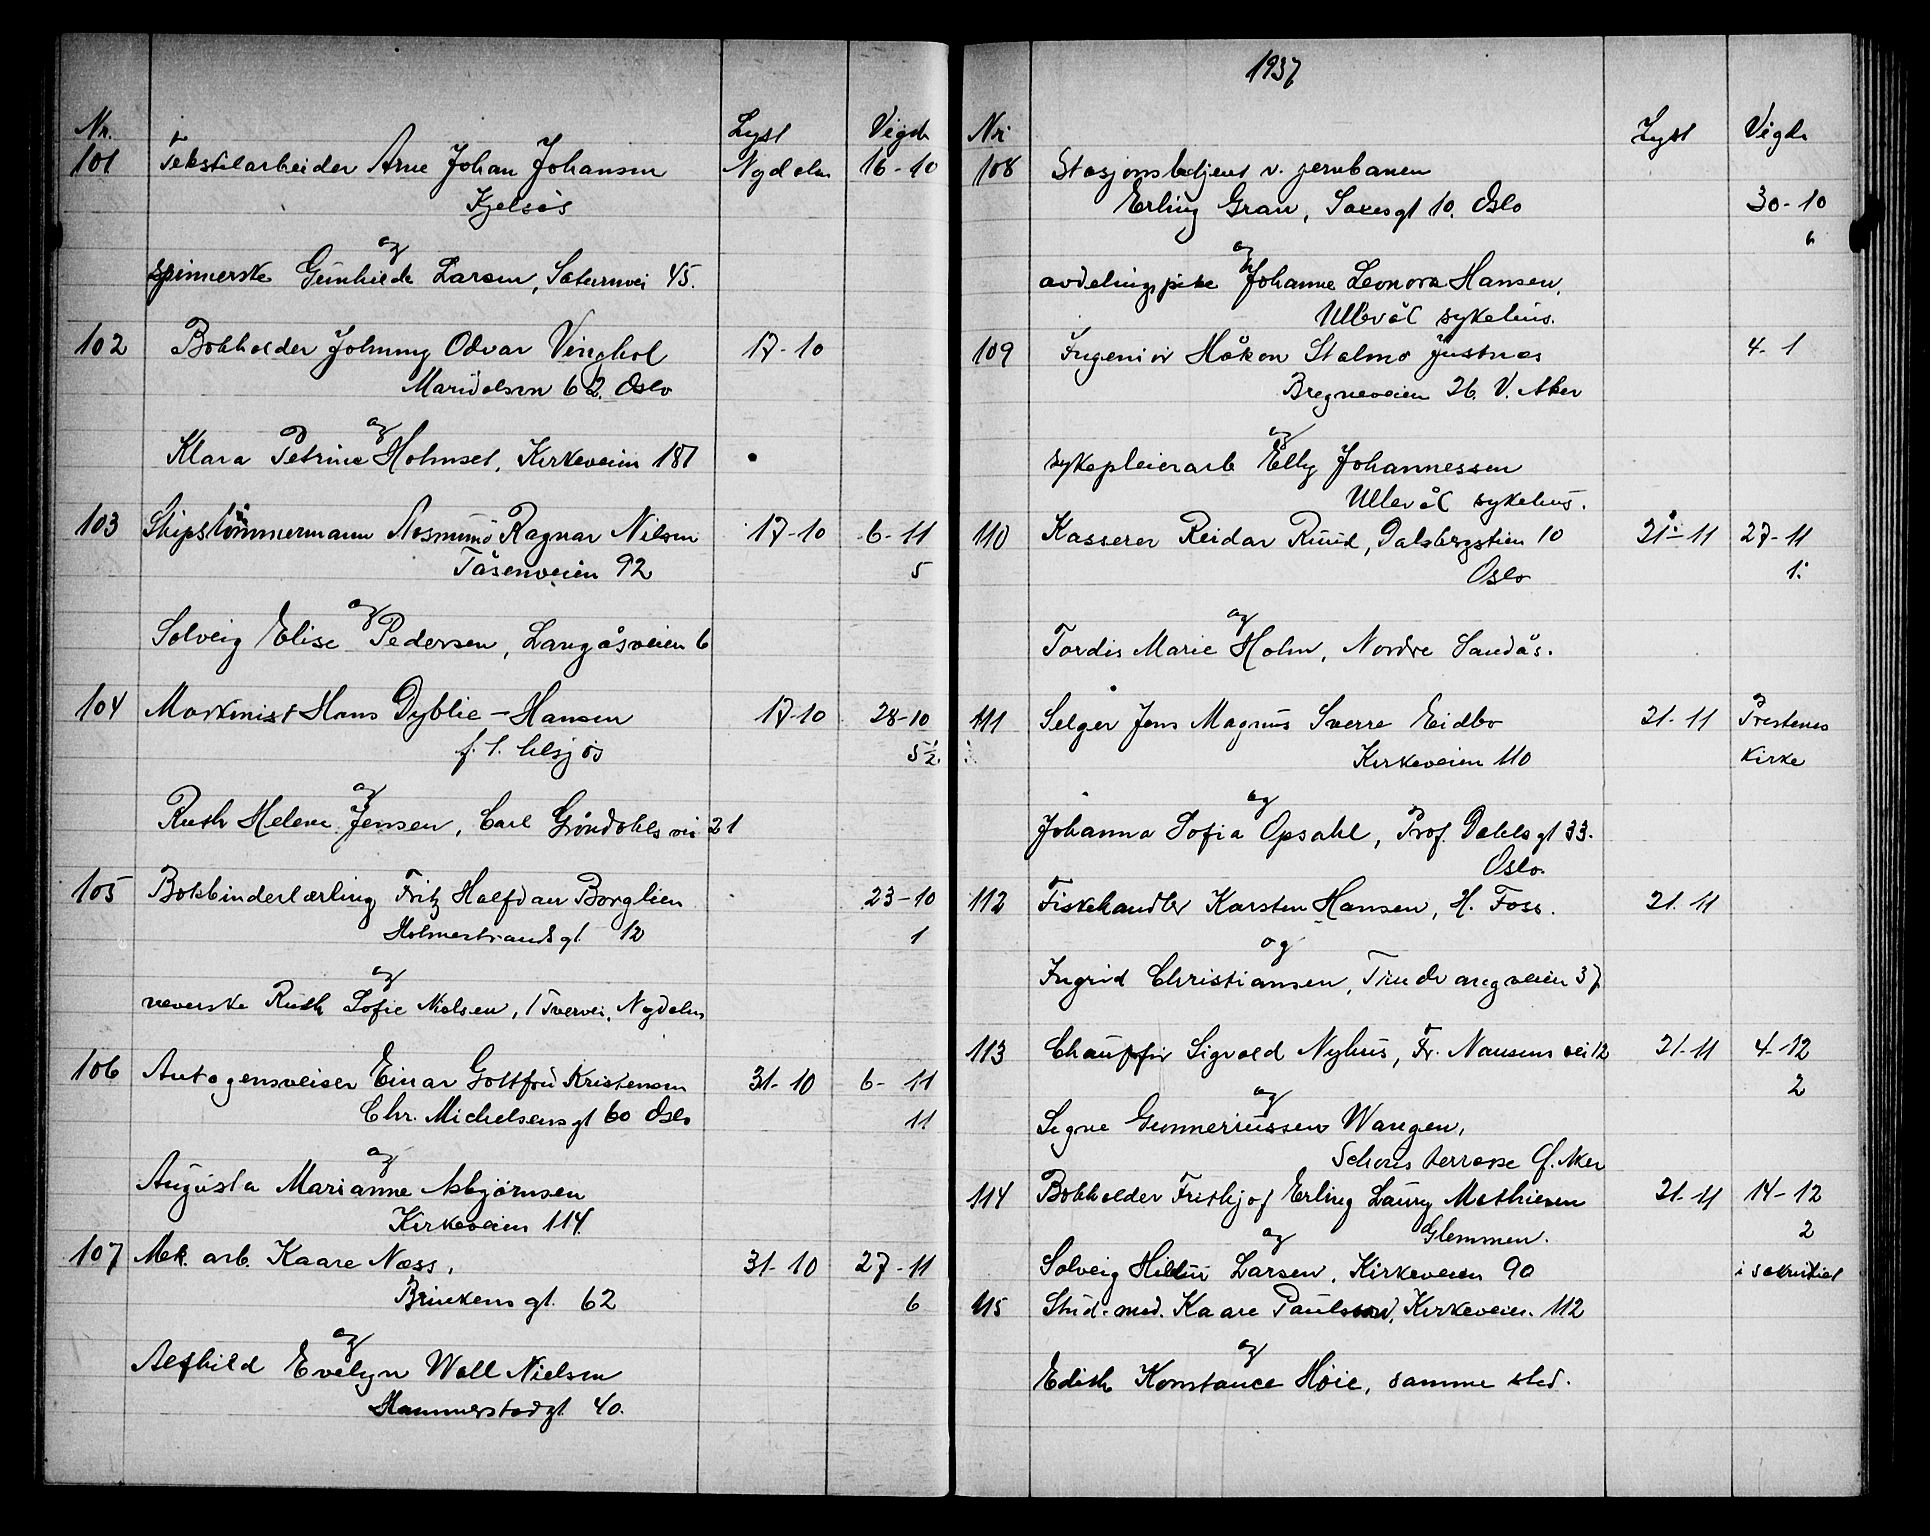 Nr. Lyst Vigde
101 Tekstilarbeider Arne Johan Johansen Nydalen 16-10
Kjelsås
og
spinnerske Gunhild Larsen, Saturnvei 45.
102 Bokholder Johnny Odvar Vinghol 17-10
Maridalsvn 62. Oslo
og
Klara Petrine Holmset, Kirkeveien 187
103 Skipstømmermann Asmund Ragnar Nilsen 17-10 6-11
Tåsenveien 92 5
og
Solveig Elise Pedersen, Langåsveien 6
104 Maskinist Hans Dyblie-Hansen 17-10 28-10
5½
og
Ruth Helene Jensen, Carl Grøndahls vei 21
105 Bokbinderlærling Fritz Halfdan Borglien 23-10
Holmestrandsgt. 12 1
og
veverske Ruth Sofie Nielsen, 1 Tvervei, Nydalen
106 Autogensveiser Einar Gottfrid Kristensen 31-10 6-11
Chr. Michelsensgt 60 Oslo 11
og
Augusta Marianne Asbjørnsen
Kirkeveien 114.
107 Mek. arb. Kaare Næss, 31-10 27-11
Brinkens gt. 62 6
og
Alfhild Evelyn Woll Nielsen
Hammerstadgt. 40.
1937
Nr Lyst Vigde
108 Stasjonsbetjent v. jernbanen
Erling Gran, Saxesgt 10. Oslo 30-10
6
og
avdelingspike Johanne Leonora Hansen,
Ullevål sykehus.
109 Ingeniør Håkon Stalmo Justnæs 4-1
Bregneveien 26. V. Aker
og
sykepleierarb Elly Johannessen
Ullevål sykehus.
110 Kasserer Reidar Ruud, Dalsbergstien 10 21-11 27-11
Oslo 1.
og
Tordis Marie Holm, Nordre Sandås.
111 Selger Jens Magnus Sverre Eidbo 21-11 Prestenes
Kirkeveien 110 Kirke
og
Johanna Sofia Opsahl, Prof. Dahls gt 33.
Oslo.
112 Fiskehandler Karsten Hansen, H. Foss. 21.11
og
Ingrid Christiansen, Trudvangveien 37
113 Chauffør Sigvald Nyhus, Fr. Nansens vei 12 21-11 4-12
2
og
Signe Gunneriussen Wangen,
Schous terrasse Ø. Aker
114 Bokholder Frithjof Erling Laury Mathisen 21-11 14-12
og Glemmen. 2
Solveig Hildur Larsen, Kirkeveien 90 i sakristiet
115 Stud. med. Kaare Paulsen, Kirkeveien. 112
og
Edith Konstance Høie, samme sted.